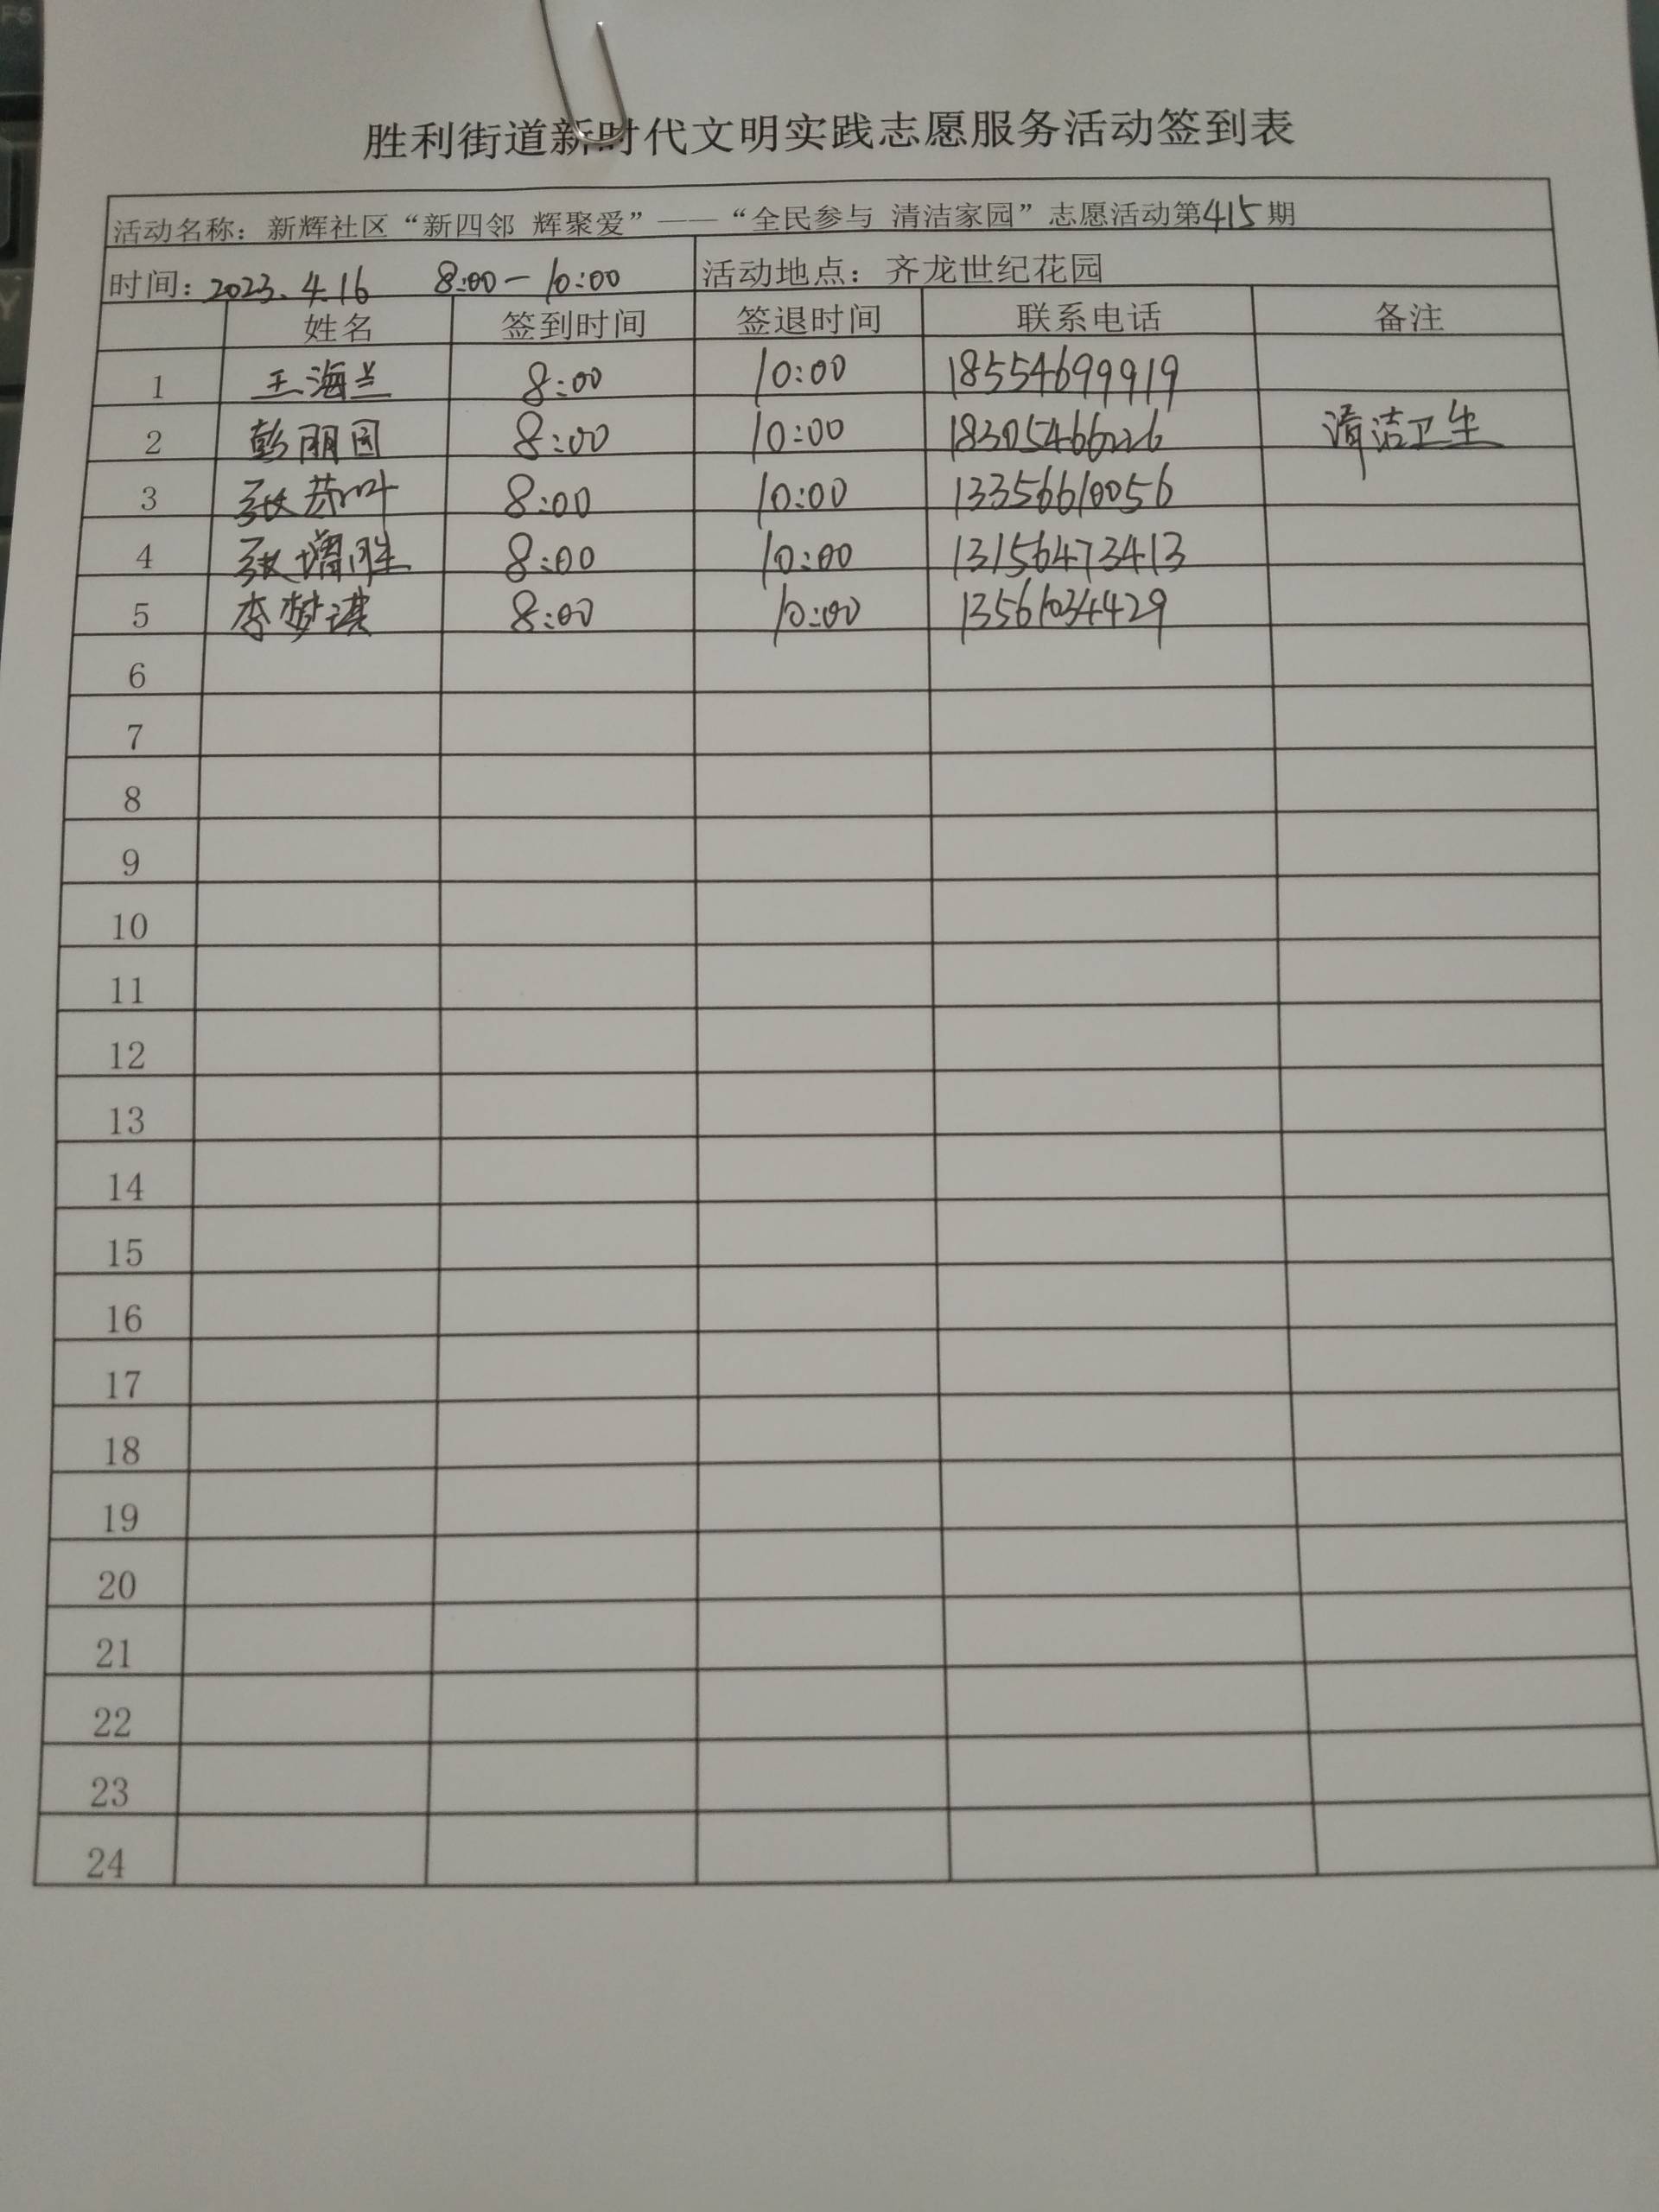 胜利街道新时代文明实践志愿服务活动签到表
活动名称：新辉社区“新四邻 辉聚爱”——“全民参与 清洁家园”志愿活动第415期
时间：2023.4.16 8:00-10:00 活动地点：齐龙世纪花园
姓名 签到时间 签退时间 联系电话 备注
1 王海兰 8:00 10:00 18554699919
2 彭丽园 8:00 10:00 清洁卫生
3 张 叶 8:00 10:00 13356610056
4 张增胜 8:00 10:00 13156473413
5 李梦琪 8:00 10:00 13561034429
6
7
8
9
10
11
12
13
14
15
16
17
18
19
20
21
22
23
24